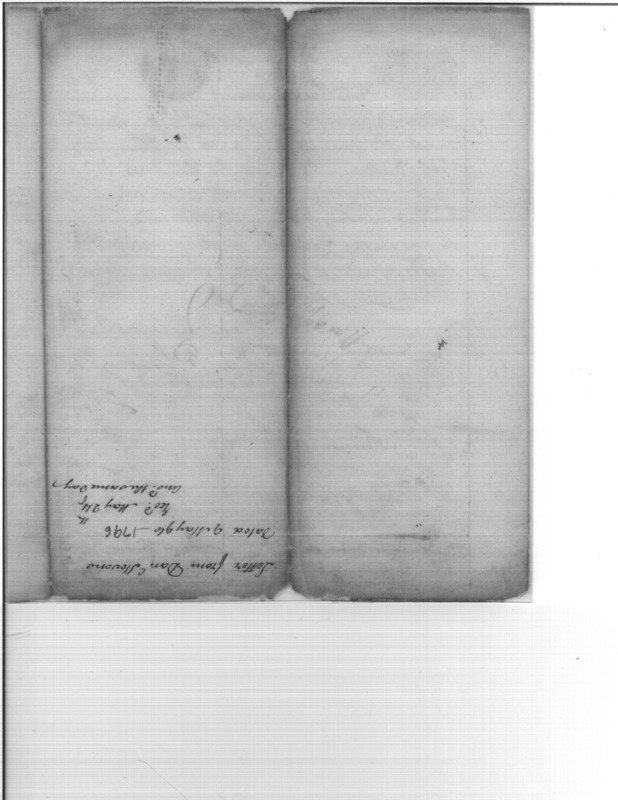 Letter from Dan Stevens
Dated 9 May 96 1796
Recd. May 24th
Ansd. the same Day